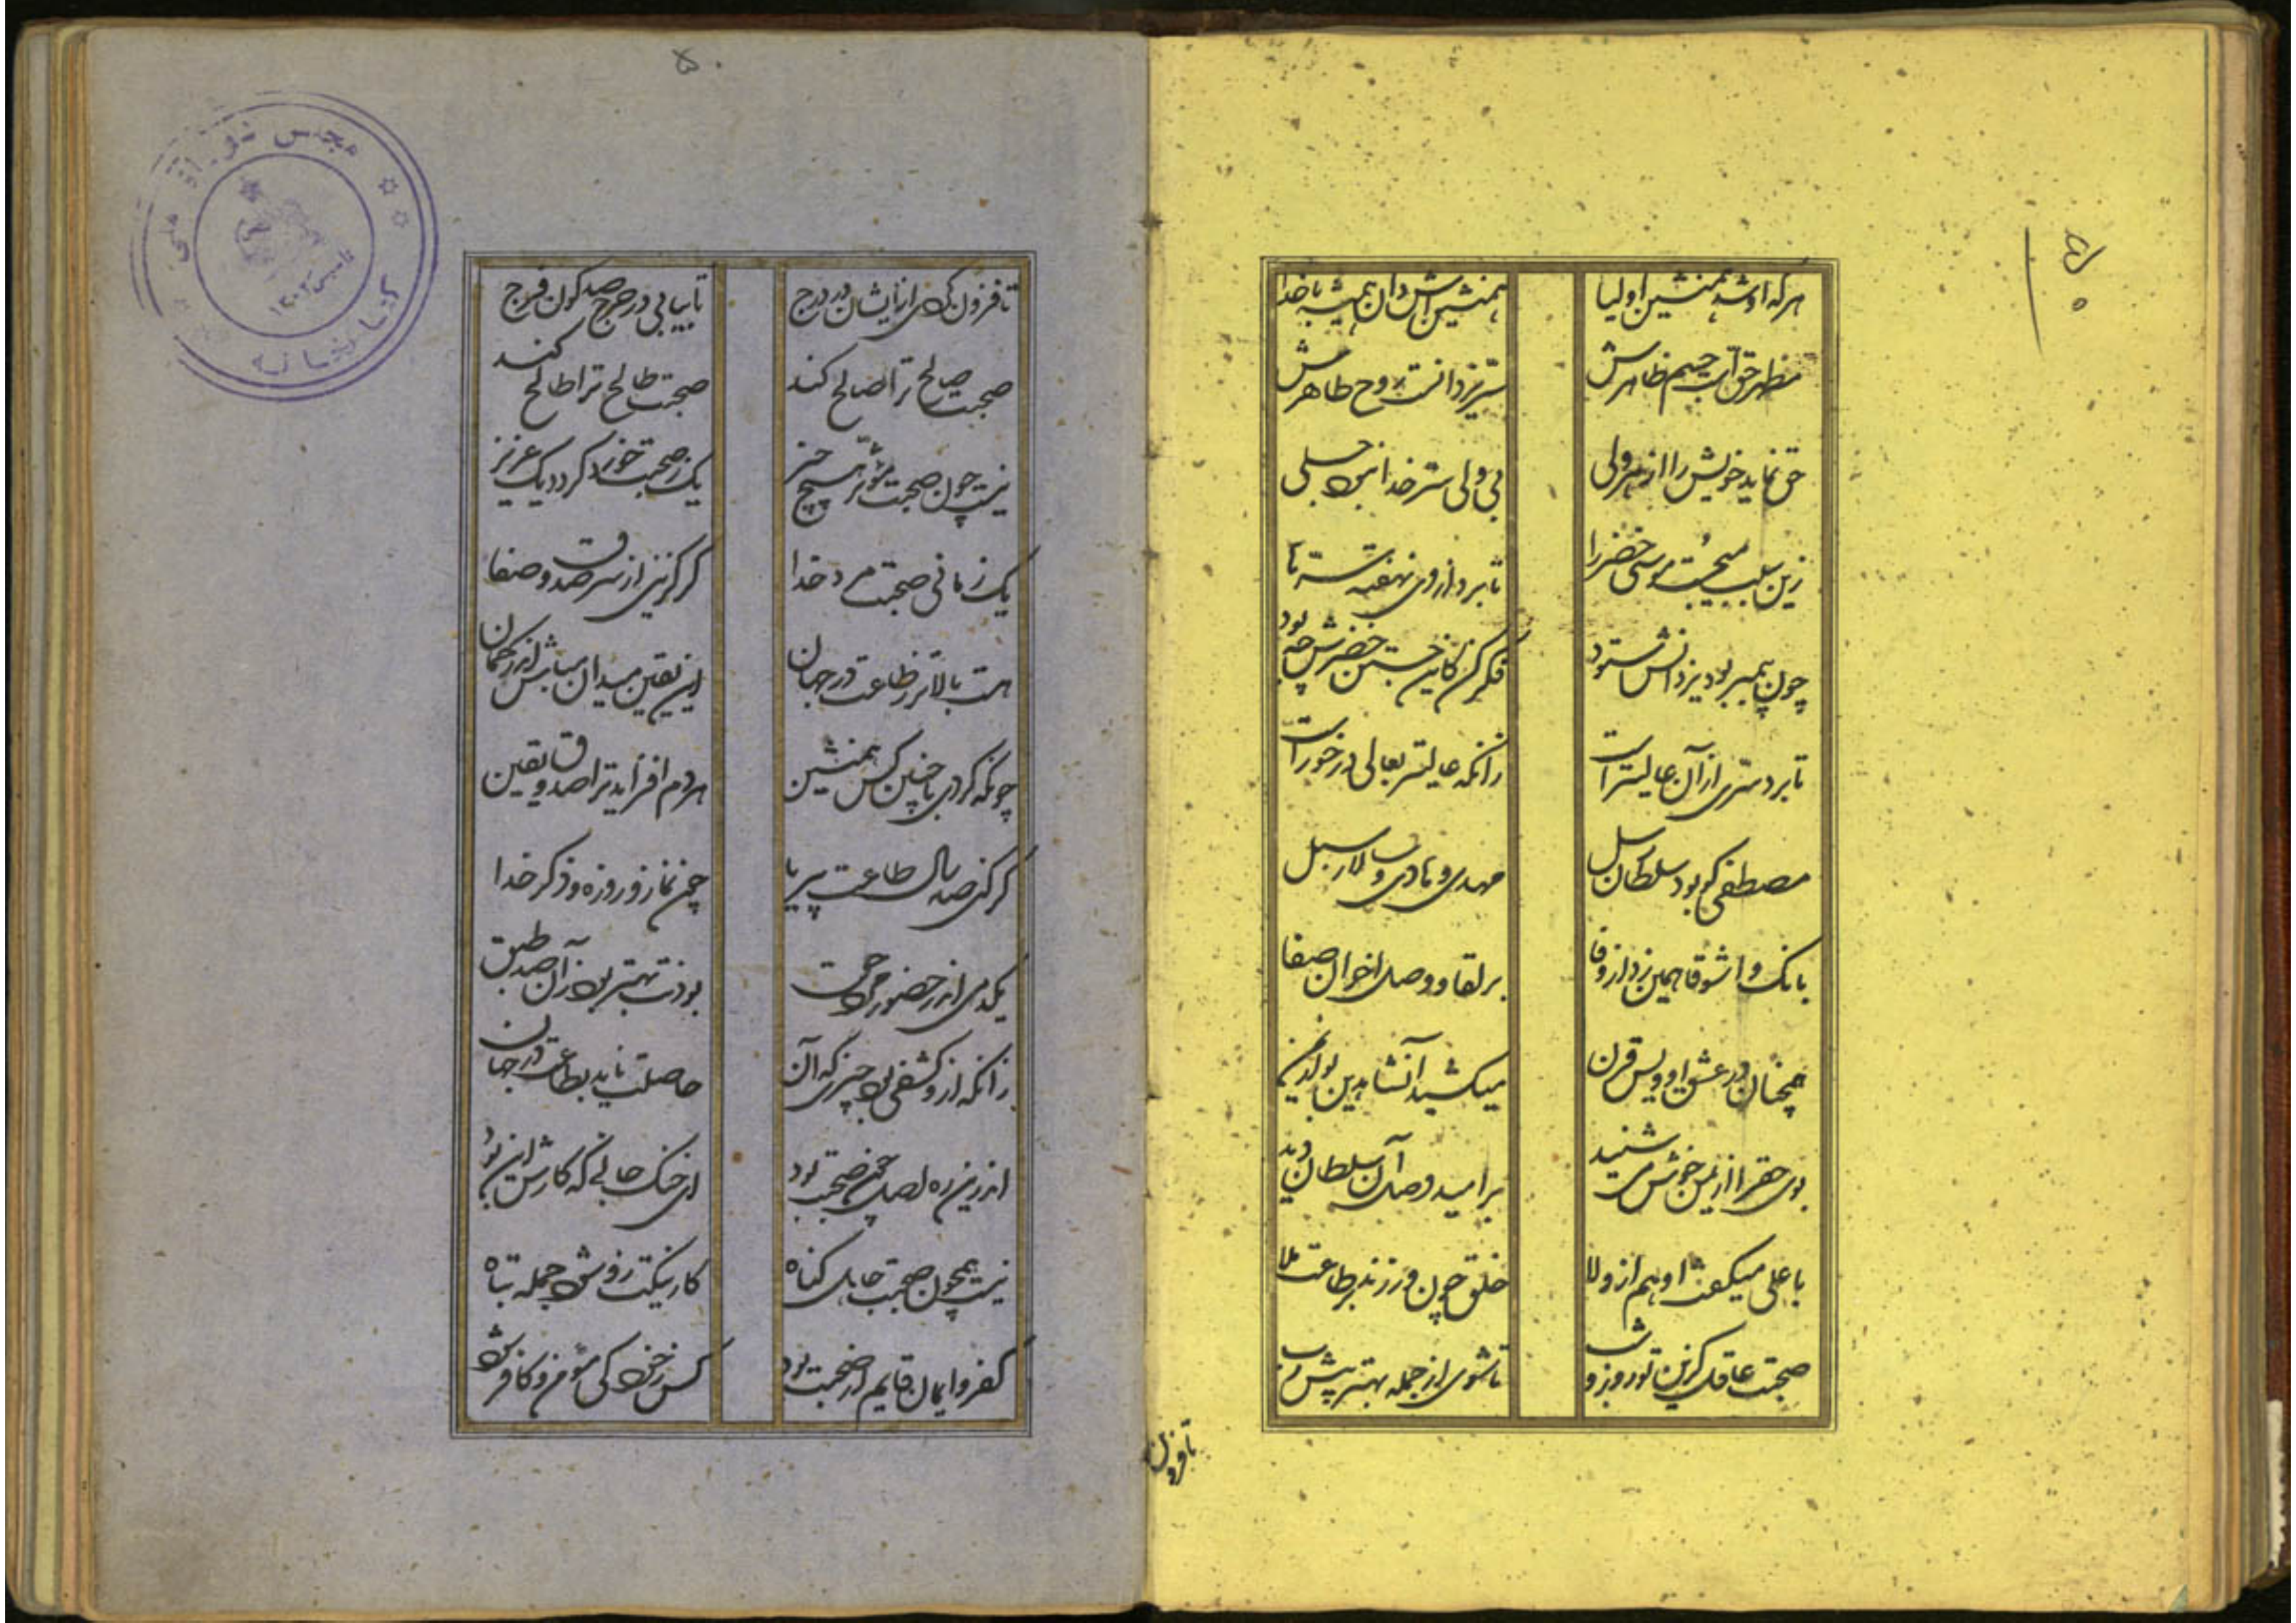 هر که او شد همنشین اولیا	همنشین اش دان همیشه با خدا
مظهر حق است جسم ظاهرش	سر یزدانست روح طاهرش
حق نماید خویش را از هر ولی	بی ولی سر خدا نبود جلی
زین سبب میجست موسی خضر را	تا برد از وی نهفته سر ها
چون پیمبر بود یزدانش ستود	فکر کن کاین جستن خضرش چه بود
تا برد سری از آن عالیتر است	زانکه عالیتر بعالی درخور است
مصطفی کو بود سلطان رسل	مهدی و هادی و سالار سبل
بانگ واشوقاه میزد از وفا	بر لقا و وصل اخوان صفا
همچنان در عشق اویس قرن	میکشید آنشاه دین بو از یمن
بوی حق را از یمن خوش می شنید	بر امید وصل آن سلطان دید
با علی میگفت او هم از ولا	خلق چون ورزند بر طاعت ملا
صحبت عاقل گزین تو روز و شب	تا شوی از جمله بهتر پیش رب
تا فزون
۵۰
تا فزون گردی از ایشان در درج	تا بیابی در حرج صد گون فرج
صحبت صالح ترا صالح کند	صحبت طالح ترا طالح کند
نیست چون صحبت مؤثر هیچ چیز	یک ز صحبت خوار گردد یک عزیز
یک زمانی صحبت مرد خدا	گر گزینی از سر صدق و صفا
هست بالاتر ز طاعت در جهان	این یقین میدان مباش اندر گمان
چونکه کردی با چنین کس همنشین	هر دم افزاید ترا صدق و یقین
گر کنی صد سال طاعت بیریا	چون نماز و روزه و ذکر خدا
یکدمی اندر حضور مرد حق	بودنت بهتر بود زان صد طبق
زانکه از وی کشف بود چیزی که آن	حاصلت ناید بطاعت در جهان
اندرین ره اصل چون صحبت بود	ای خنک جانی که کارش این بود
نیست همچون صحبت جاهل گناه	کار نیکت زو شود جمله تباه
کفر و ایمان قایم از صحبت بود	کس ز خود کی مؤمن و کافر شود
کتابخانه مجلس شورای ملی
تاسیس ۱۳۰۲